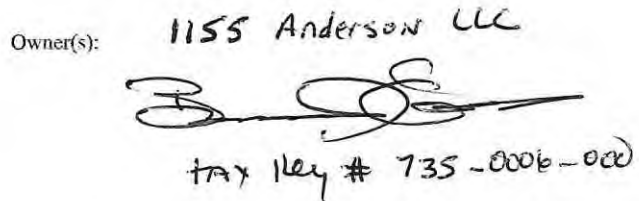 Owner(s): 1155 Anderson LLC
tax Key # 735-0006-000